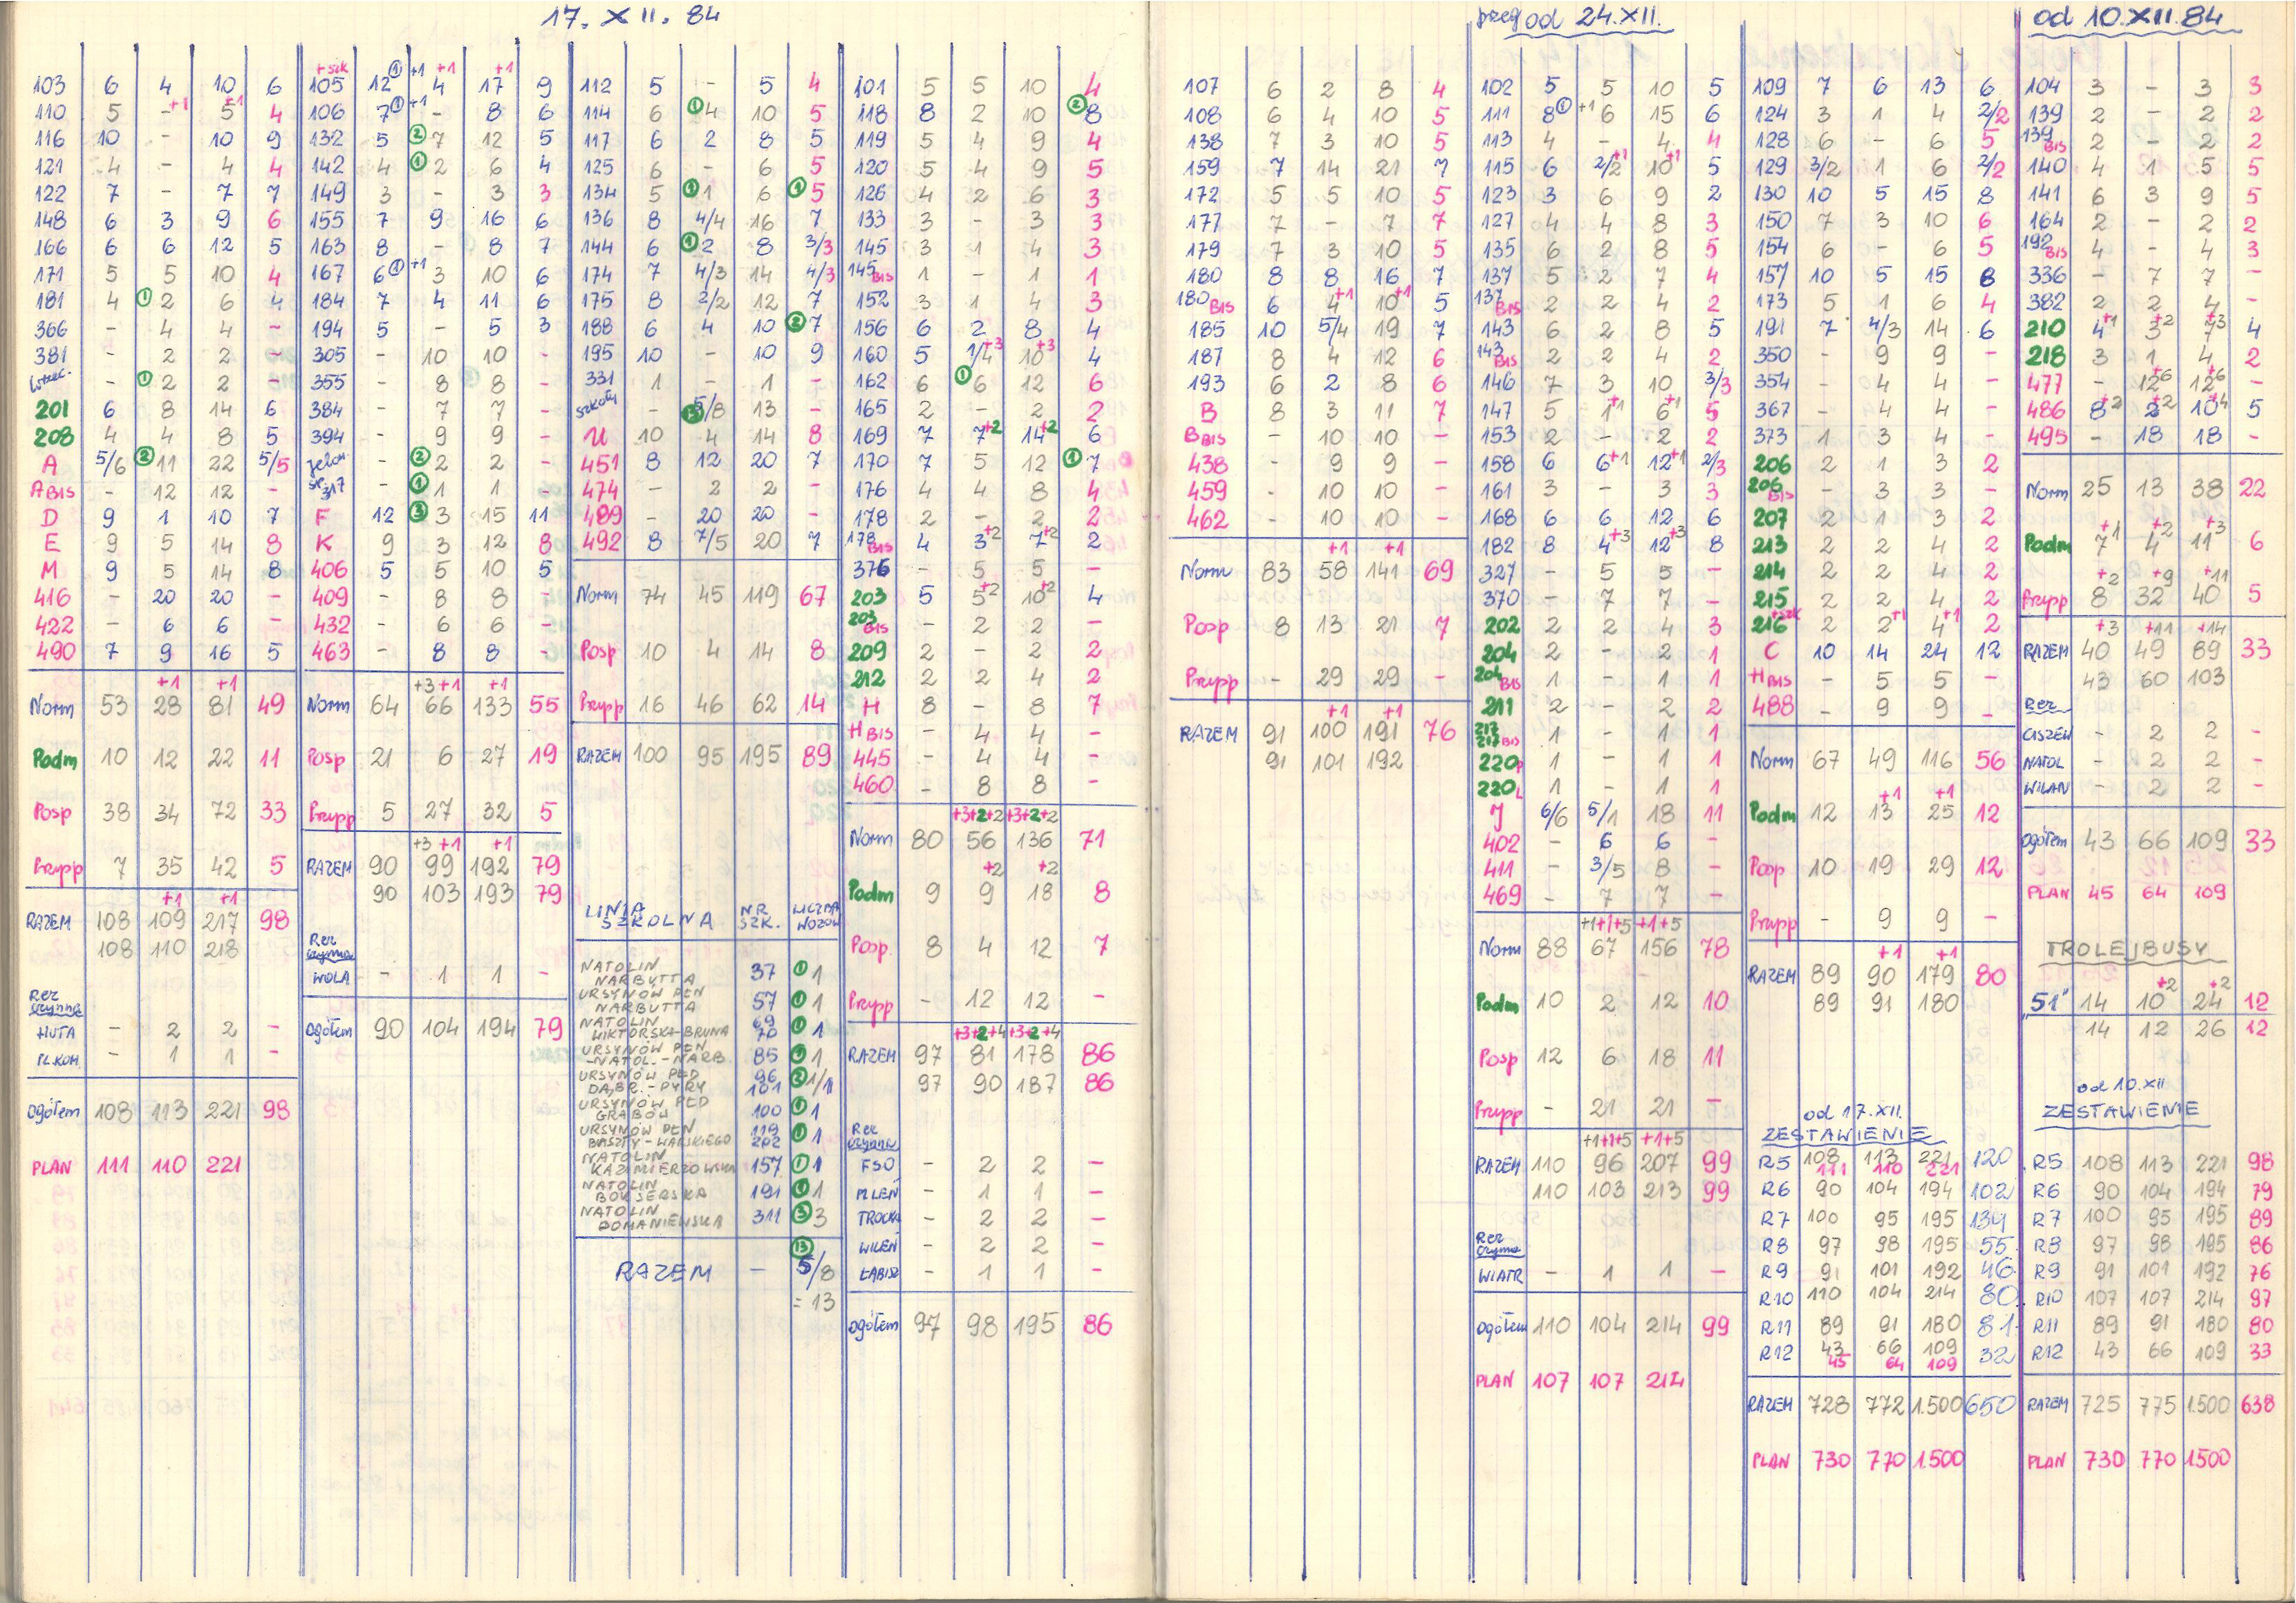 17. XII. 84
103 6 4 10 6
110 5 - +1 5 +1 4
116 10 - 10 9
121 4 - 4 4
122 7 - 7 7
148 6 3 9 6
166 6 6 12 5
171 5 5 10 4
181 4 ① 2 6 4
366 - 4 4 -
381 - 2 2 -
- ① 2 2 -
201 6 8 14 6
208 4 4 8 5
A 5/6 ② 11 22 5/5
A BIS - 12 12 -
D 9 1 10 7
E 9 5 14 8
M 9 5 14 8
416 - 20 20 -
422 - 6 6 -
490 7 9 16 5
+1 +1
Norm 53 28 81 49
Podm 10 12 22 11
Posp 38 34 72 33
Przysp 7 35 42 5
+1 +1
RAZEM 108 109 217 98
108 110 218
Rez czynna
HUTA - 2 2 -
PL.KOM - 1 1 -
Ogółem 108 113 221 98
PLAN 111 110 221
+szk
105 12 ① +1 4 +1 17 +1 9
106 7 ① +1 - 8 6
132 5 ② 7 12 5
142 4 ① 2 6 4
149 3 - 3 3
155 7 9 16 6
163 8 - 8 7
167 6 ① +1 3 10 6
184 7 4 11 6
194 5 - 5 3
305 - 10 10 -
355 - 8 8 -
384 - 7 7 -
394 - 9 9 -
- ② 2 2 -
317 - ① 1 1 -
F 12 ③ 3 15 11
K 9 3 12 8
406 5 5 10 5
409 - 8 8 -
432 - 6 6 -
463 - 8 8 -
+3 +1 +1
Norm 64 66 133 55
Posp 21 6 27 19
Przysp 5 27 32 5
+3 +1 +1
RAZEM 90 99 192 79
90 103 193 79
Rez czynna
WOLA - 1 1 -
Ogółem 90 104 194 79
112 5 - 5 4
114 6 ① 4 10 5
117 6 2 8 5
125 6 - 6 5
134 5 ① 1 6 ① 5
136 8 4/4 16 7
144 6 ① 2 8 3/3
174 7 4/3 14 4/3
175 8 2/2 12 7
188 6 4 10 ② 7
195 10 - 10 9
331 1 - 1 -
szkoły - ⑬ 5/8 13 -
U 10 4 14 8
451 8 12 20 7
474 - 2 2 -
489 - 20 20 -
492 8 7/5 20 7
Norm 74 45 119 67
Posp 10 4 14 8
Przysp 16 46 62 14
RAZEM 100 95 195 89
LINIA SZKOLNA NR SZK. LICZBA WOZÓW
NATOLIN NARBUTTA 37 ① 1
URSYNÓW PŁN NARBUTTA 57 ① 1
NATOLIN WIKTORSKA-BRUNA 69 70 ① 1
URSYNÓW PŁN -NATOL.-NARB. 85 ① 1
URSYNÓW PŁD DĄBR.-PYRY 96 101 ② 1/1
URSYNÓW PŁD GRABÓW 100 ① 1
URSYNÓW PŁN BASZTY-WARSKIEGO 119 202 ① 1
NATOLIN KAZIMIERZOWSKA 157 ① 1
NATOLIN BOKSERSKA 191 ① 1
NATOLIN DOMANIEWSKA 311 ③ 3
⑬
RAZEM - 5/8
= 13
101 5 5 10 4
118 8 2 10 ② 8
119 5 4 9 4
120 5 4 9 5
126 4 2 6 3
133 3 - 3 3
145 3 1 4 3
145 BIS 1 - 1 1
152 3 1 4 3
156 6 2 8 4
160 5 1/4 +3 10 +3 4
162 6 ① 6 12 6
165 2 - 2 2
169 7 7 +2 14 +2 6
170 7 5 12 ① 7
176 4 4 8 4
178 2 - 2 2
178 BIS 4 3 +2 7 +2 2
376 - 5 5 -
203 5 5 +2 10 +2 4
203 BIS - 2 2 -
209 2 - 2 2
212 2 2 4 2
H 8 - 8 7
H BIS - 4 4 -
445 - 4 4 -
460 - 8 8 -
+3+2+2 +3+2+2
Norm 80 56 136 71
+2 +2
Podm 9 9 18 8
Posp. 8 4 12 7
Przysp - 12 12 -
+3+2+4 +3+2+4
RAZEM 97 81 178 86
97 90 187 86
Rez czynna
FSO - 2 2 -
PL LEŃ - 1 1 -
TROCKA - 2 2 -
WILEŃ - 2 2 -
ŁABISZ - 1 1 -
Ogółem 97 98 195 86
107 6 2 8 4
108 6 4 10 5
138 7 3 10 5
159 7 14 21 7
172 5 5 10 5
177 7 - 7 7
179 7 3 10 5
180 8 8 16 7
180 BIS 6 4 +1 10 +1 5
185 10 5/4 19 7
187 8 4 12 6
193 6 2 8 6
B 8 3 11 7
B BIS - 10 10 -
438 - 9 9 -
459 - 10 10 -
462 - 10 10 -
+1 +1
Norm 83 58 141 69
Posp 8 13 21 7
Przysp - 29 29 -
+1 +1
RAZEM 91 100 191 76
91 101 192
od 24.XII.
102 5 5 10 5
111 8 ① +1 6 15 6
113 4 - 4 4
115 6 2/2 +1 10 +1 5
123 3 6 9 2
127 4 4 8 3
135 6 2 8 5
137 5 2 7 4
137 BIS 2 2 4 2
143 6 2 8 5
143 BIS 2 2 4 2
146 7 3 10 3/3
147 5 1 +1 6 +1 5
153 2 - 2 2
158 6 6 +1 12 +1 2/3
161 3 - 3 3
168 6 6 12 6
182 8 4 +3 12 +3 8
327 - 5 5 -
370 - 7 7 -
202 2 2 4 3
204 2 - 2 1
204 BIS 1 - 1 1
211 2 - 2 2
217 217 BIS 1 - 1 1
220P 1 - 1 1
220L 1 - 1 1
J 6/6 5/1 18 11
402 - 6 6 -
411 - 3/5 8 -
469 - 7 7 -
+1+1+5 +1+5
Norm 88 67 156 78
Podm 10 2 12 10
Posp 12 6 18 11
Przysp - 21 21 -
+1+1+5 +1+5
RAZEM 110 96 207 99
110 103 213 99
Rez czynna
WIATR - 1 1 -
Ogółem 110 104 214 99
PLAN 107 107 214
109 7 6 13 6
124 3 1 4 2/2
128 6 - 6 5
129 3/2 1 6 2/2
130 10 5 15 8
150 7 3 10 6
154 6 - 6 5
157 10 5 15 8
173 5 1 6 4
191 7 4/3 14 6
350 - 9 9 -
354 - 4 4 -
367 - 4 4 -
373 1 3 4 -
206 2 1 3 2
206 BIS - 3 3 -
207 2 1 3 2
213 2 2 4 2
214 2 2 4 2
215 2 2 4 2
216 +szk 2 2 +1 4 +1 2
C 10 14 24 12
H BIS - 5 5 -
488 - 9 9 -
Norm 67 49 116 56
+1 +1
Podm 12 13 25 12
Posp 10 19 29 12
Przysp - 9 9 -
+1 +1
RAZEM 89 90 179 80
89 91 180
od 17.XII.
ZESTAWIENIE
R5 108 113 221 120
111 110 221
R6 90 104 194 102
R7 100 95 195 134
R8 97 98 195 55
R9 91 101 192 46
R10 110 104 214 80
R11 89 91 180 81
R12 43 66 109 32
45 64 109
RAZEM 728 772 1.500 650
PLAN 730 770 1.500
od 10.XII.84
104 3 - 3 3
139 2 - 2 2
139 BIS 2 - 2 2
140 4 1 5 5
141 6 3 9 5
164 2 - 2 2
192 BIS 4 - 4 3
336 - 7 7 -
382 2 2 4 -
210 4 +1 3 +2 7 +3 4
218 3 1 4 2
477 - 12 +6 12 +6 -
486 8 +2 2 +2 10 +4 5
495 - 18 18 -
Norm 25 13 38 22
+1 +2 +3
Podm 7 4 11 6
+2 +9 +11
Przysp 8 32 40 5
+3 +11 +14
RAZEM 40 49 89 33
43 60 103
Rez
CISZEW - 2 2 -
NATOL - 2 2 -
WILAN - 2 2 -
Ogółem 43 66 109 33
PLAN 45 64 109
TROLEJBUSY
51 14 10 +2 24 +2 12
14 12 26 12
od 10.XII
ZESTAWIENIE
R5 108 113 221 98
R6 90 104 194 79
R7 100 95 195 89
R8 97 98 195 86
R9 91 101 192 76
R10 107 107 214 97
R11 89 91 180 80
R12 43 66 109 33
RAZEM 725 775 1.500 638
PLAN 730 770 1.500